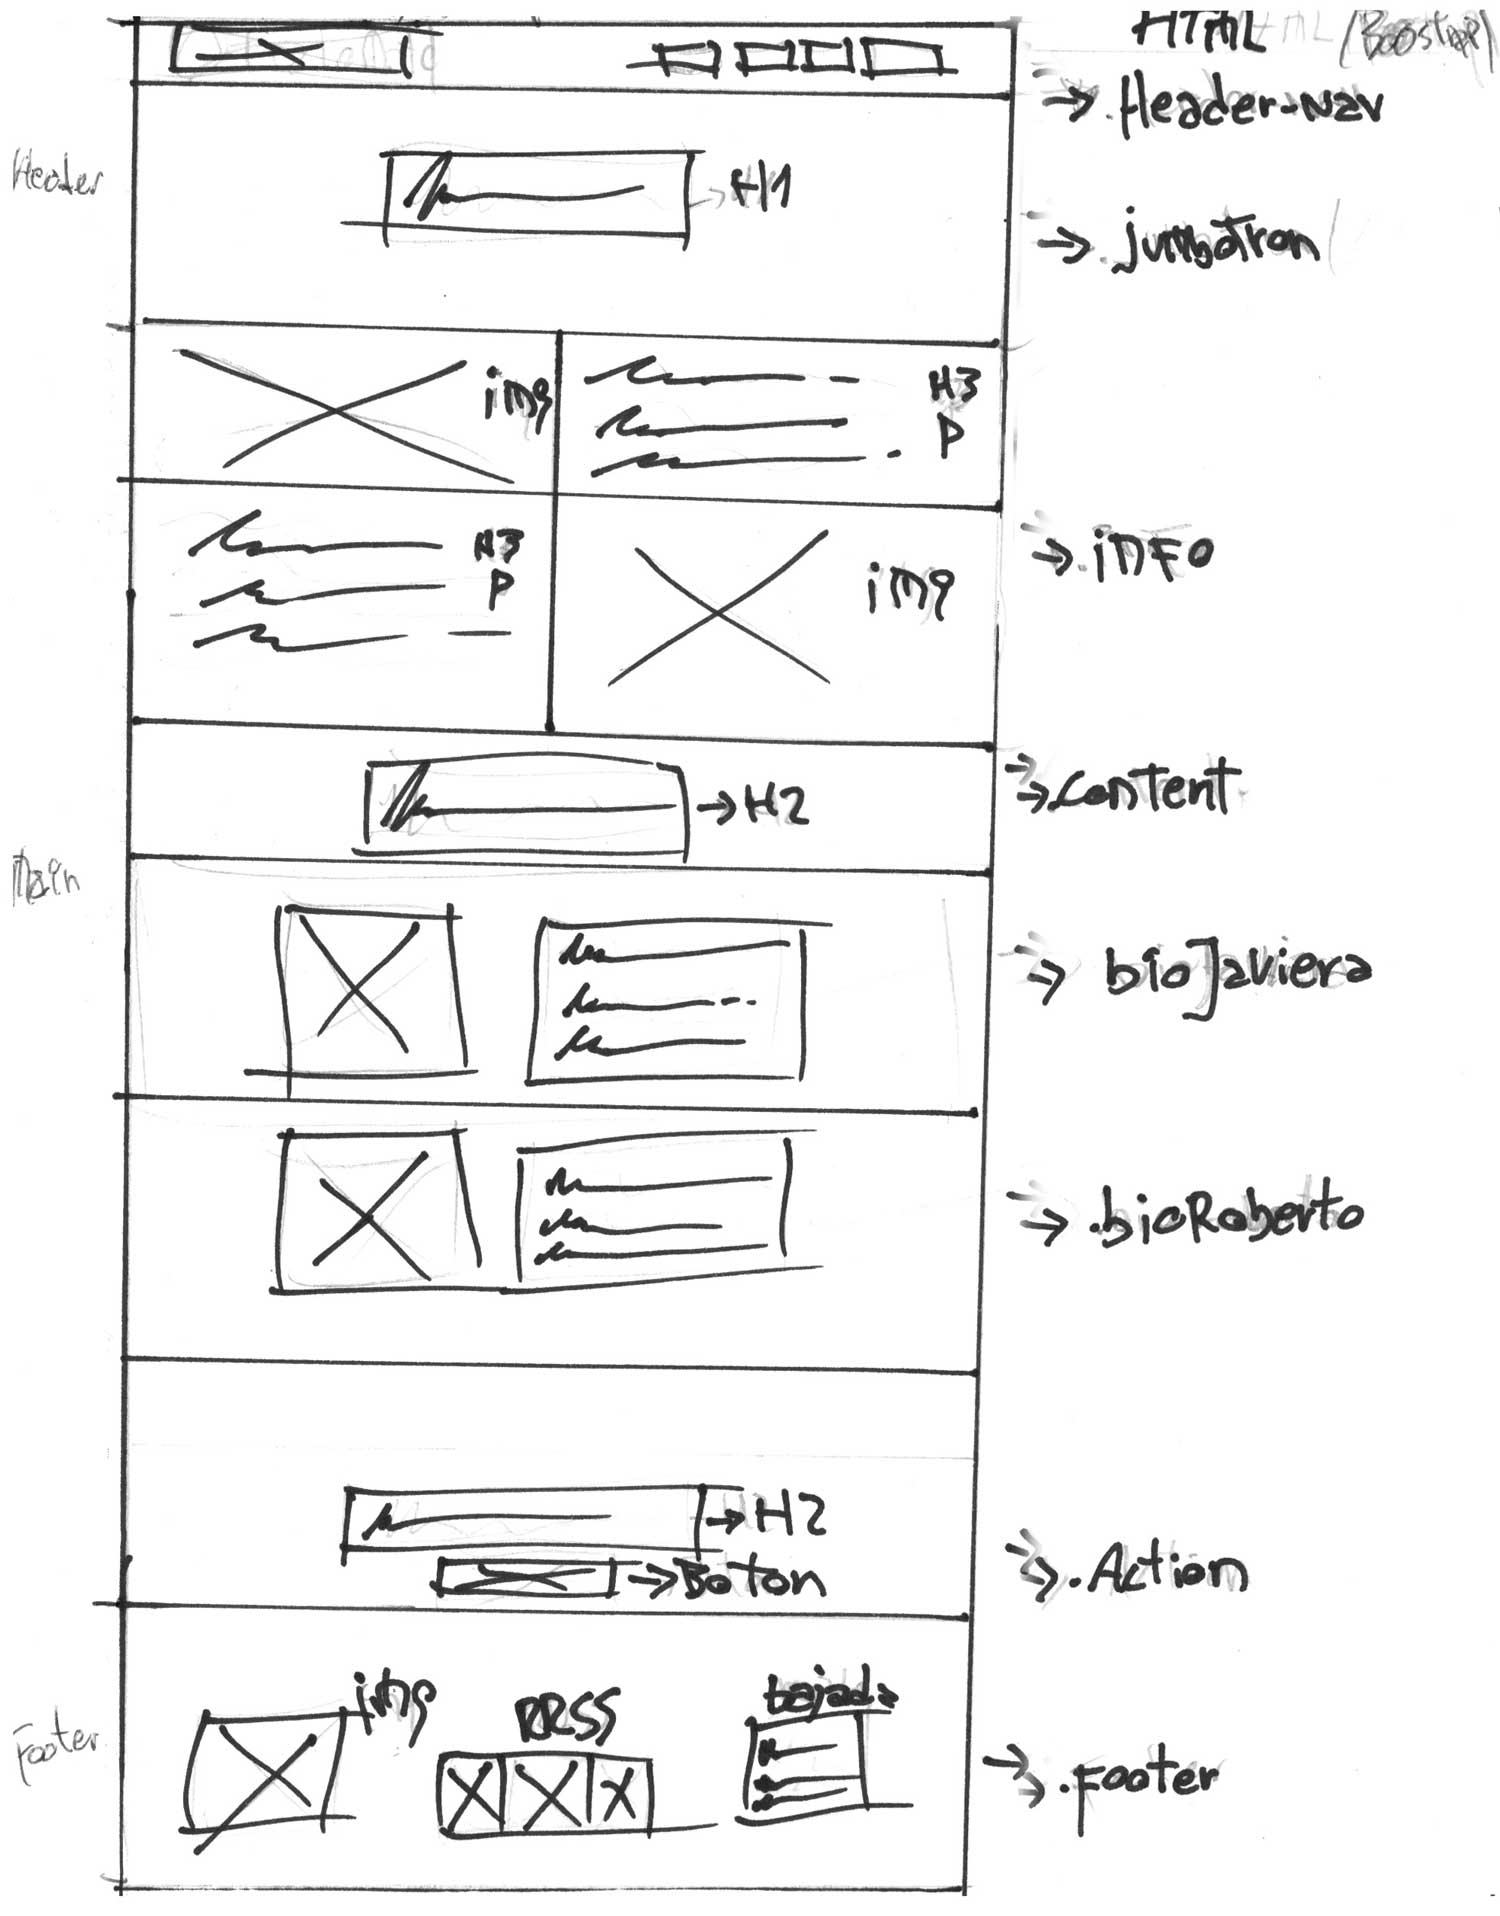 HTML (Boostrap)
.Header-nav
Header
H1
.jumbotron
img
H3
P
H3
P
img
.info
.content
H2
Main
bioJaviera
.bioRoberto
H2
Boton
.Action
img
RRSS
bajada
Footer
.Footer